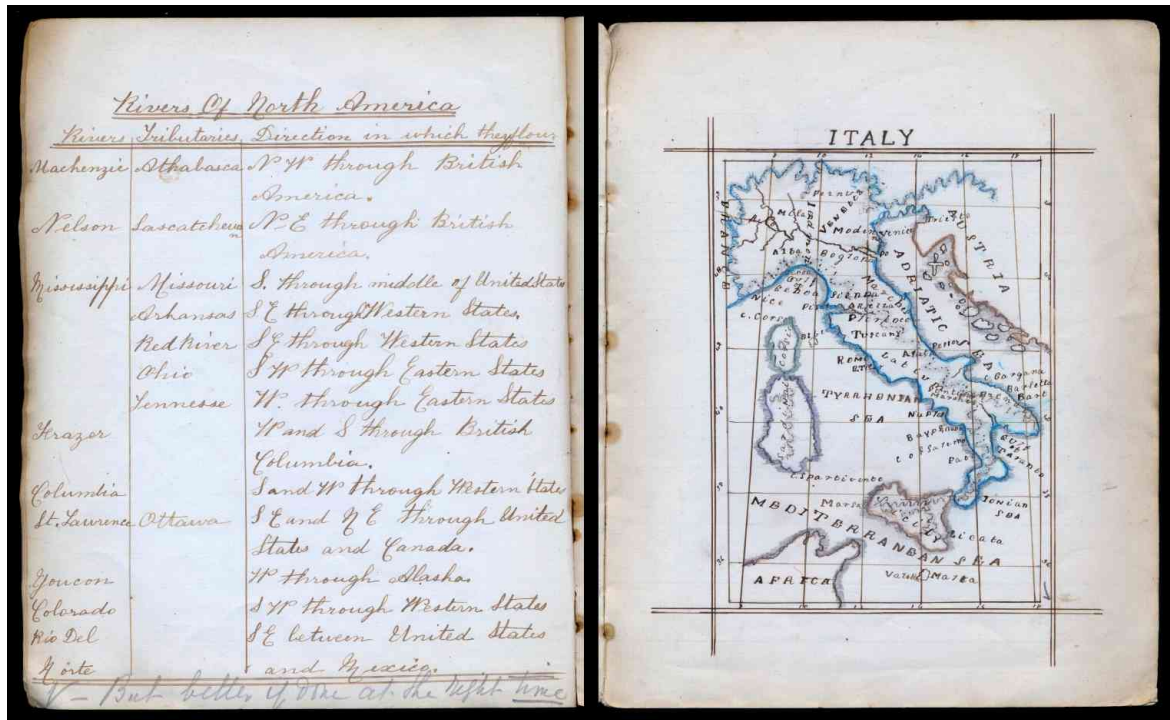 Rivers Of North America
Rivers Tributaries Direction in which they flow
Mackenzie Athabasca N W through British
America.
Nelson Sascatchewn N E through British
America.
Mississippi Missouri S. through middle of United States
Arkansas S E through Western States.
Red River S E through Western States
Ohio S W through Eastern States
Tennesse W. through Eastern States
Frazer W and S through British
Columbia.
Columbia S and W through Western States
St. Lawrence Ottawa S E and N E through United
States and Canada.
Youcon W through Alaska.
Colorado S W through Western States
Rio Del S E between United States
Norte and Mexico.
But better if done at the right time
ITALY
FRANCE
AUSTRIA
Venice
Modin
Bologna
ADRIATIC
Nice
C. Corso
Corsica
Florence
Tuscany
ROME
Gargano
Barletta
Bari
TYRRHENIAN
SEA
Naples
GULF
of
Taranto
C. Spartivento
IONIAN
SEA
MEDITERRANEAN SEA
SICILY
Licata
AFRICA
Malta